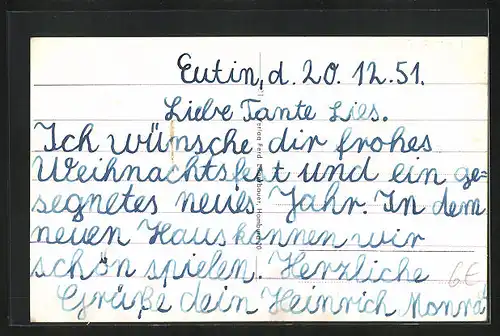 Eutin, d. 20. 12. 51.
Liebe Tante Lies.
Ich wünsche dir frohes
Weihnachtsfest und ein ge=
segnetes neues Jahr. In dem
neuen Haus kennen wir
schön spielen. Herzliche
Grüße dein Heinrich
6€